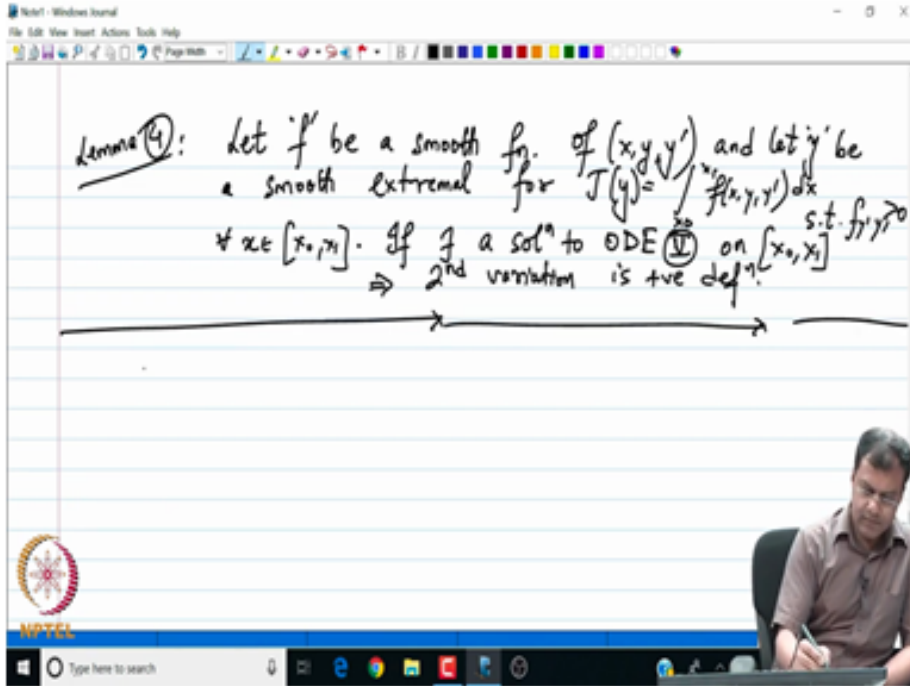 Note1 - Windows Journal
File Edit View Insert Actions Tools Help
Page Width
B I
Lemma ④: Let 'f' be a smooth fn. of (x, y, y') and let 'y' be
a smooth extremal for J(y) = ∫_{x₀}^{x₁} f(x, y, y') dx
s.t. f_{y'y'} > 0
∀ x ∈ [x₀, x₁]. If ∃ a solⁿ to ODE Ⓥ on [x₀, x₁]
⇒ 2nd variation is +ve defⁿ.
NPTEL
Type here to search